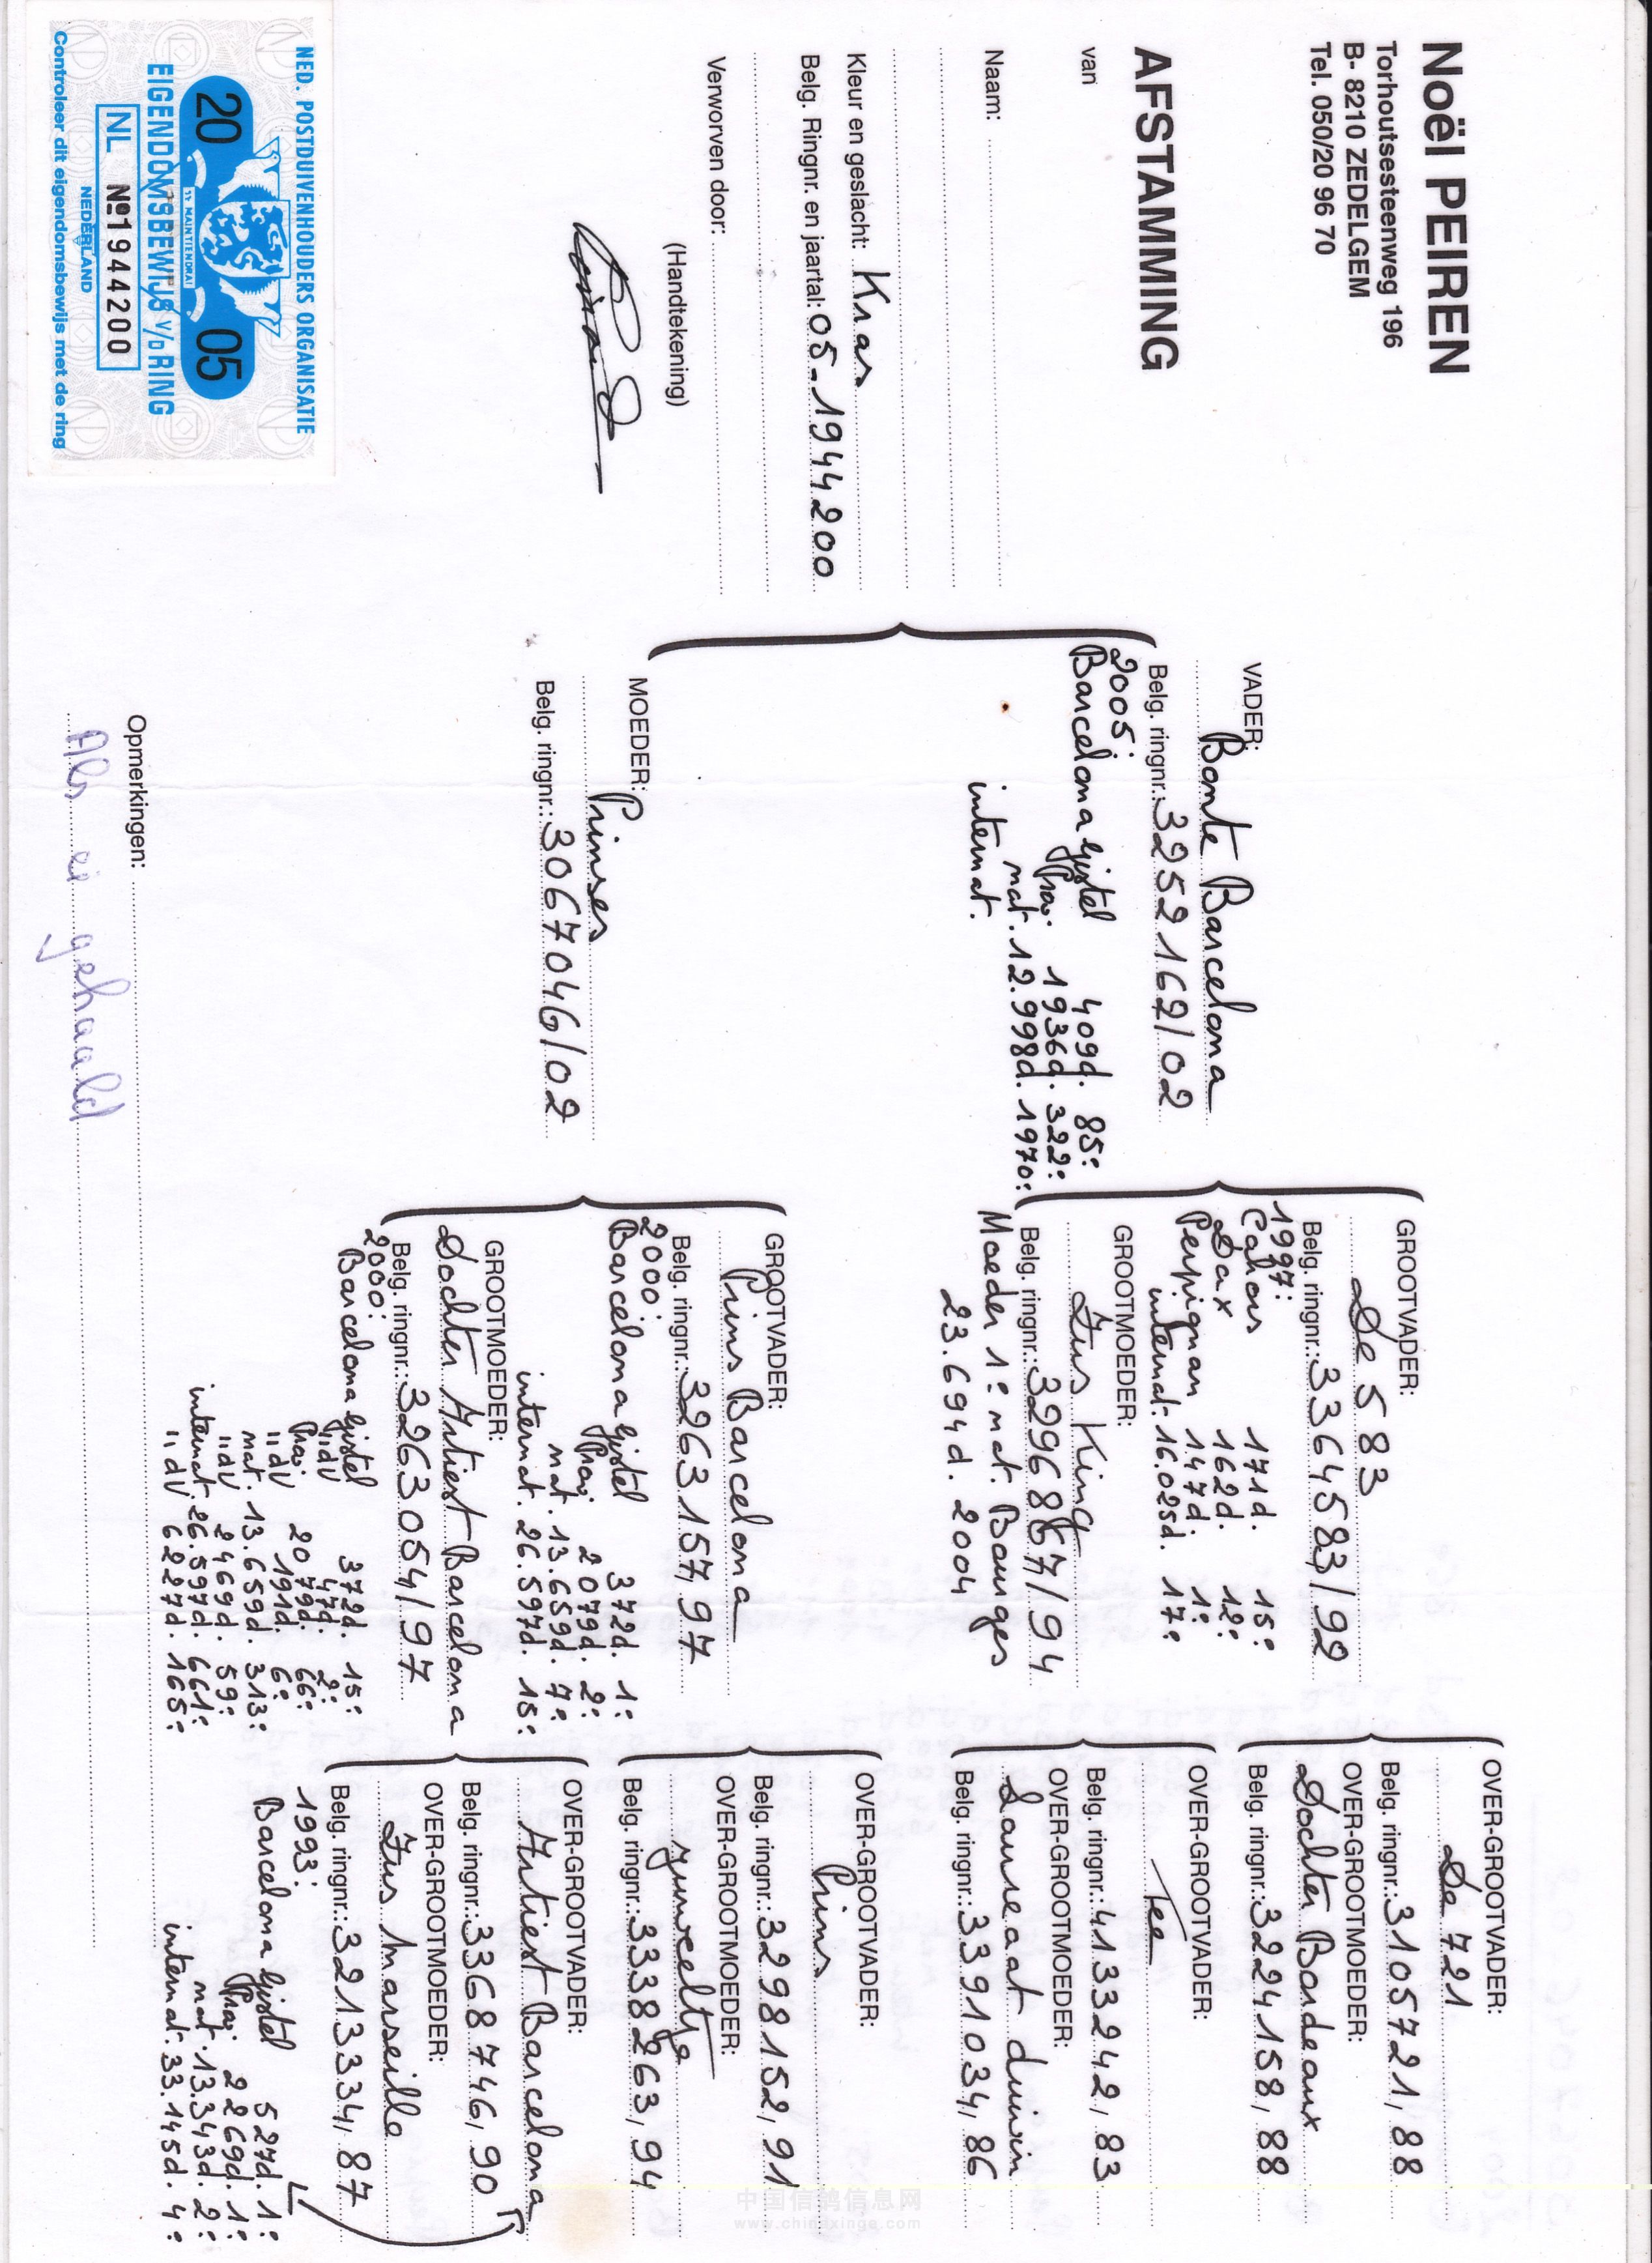 Noël PEIREN
Torhoutsesteenweg 196
B- 8210 ZEDELGEM
Tel. 050/20 96 70
AFSTAMMING
van
Naam:
Kleur en geslacht: Kras
Belg. Ringnr. en jaartal: 05-1944200
Verworven door:
(Handtekening)
NED. POSTDUIVENHOUDERS ORGANISATIE
20 05
JE MAINTIENDRAI
EIGENDOMSBEWIJS V/D RING
NL №1944200
NEDERLAND
Controleer dit eigendomsbewijs met de ring
VADER:
Bonte Barcelona
Belg. ringnr.: 3252162/02
2005:
Barcelona Gistel 409d. 85:
Prov. 1936d. 322:
nat. 12.998d. 1970:
internat.
MOEDER:
Prinses
Belg. ringnr.: 3067046/02
Opmerkingen:
Als ei gehaald
GROOTVADER:
De 583
Belg. ringnr.: 3364583/92
1997:
Cahors 171d. 15:
Dax 162d. 12:
Perpignan 147d. 1:
internat. 16.025d. 17:
GROOTMOEDER:
Zus King
Belg. ringnr.: 3296887/94
Moeder 1: nat. Bourges
23.694d. 2004
GROOTVADER:
Prins Barcelona
Belg. ringnr.: 3263157,97
2000:
Barcelona Gistel 372d. 1:
Prov. 2079d. 2:
nat. 13.659d. 7:
internat. 26.597d. 15:
GROOTMOEDER:
Dochter Artiest Barcelona
Belg. ringnr.: 3263054/97
2000:
Barcelona Gistel 372d. 15:
"dV 47d. 2:
Prov. 2079d. 66:
"dV 191d. 6:
nat. 13.659d. 313:
"dV 2469d. 59:
internat. 26.597d. 661:
"dV 6227d. 165:
OVER-GROOTVADER:
De 721
Belg. ringnr.: 3105721,88
OVER-GROOTMOEDER:
Dochter Bordeaux
Belg. ringnr.: 3224158,88
OVER-GROOTVADER:
Tee
Belg. ringnr.: 4133242,83
OVER-GROOTMOEDER:
Laureaat duivin
Belg. ringnr.: 3391034,86
OVER-GROOTVADER:
Prins
Belg. ringnr.: 3298152,91
OVER-GROOTMOEDER:
Juweeltje
Belg. ringnr.: 3338263,94
OVER-GROOTVADER:
Artiest Barcelona
Belg. ringnr.: 3368746,90
OVER-GROOTMOEDER:
Zus Marseille
Belg. ringnr.: 3213334,87
1993:
Barcelona Gistel 527d. 1:
Prov. 2269d. 1:
nat. 13.343d. 2:
internat. 33.145d. 4:
中国信鸽信息网
www.chinaxinge.com